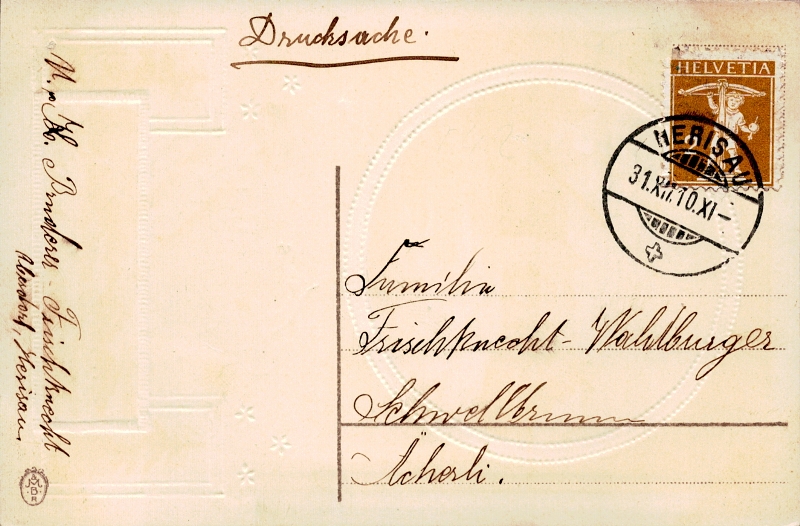 Drucksache.
HELVETIA
HERISAU
31.XII.10.XI-
Familie
Frischknecht-Wahlburger
Schwellbrunn
Ächerli.
Frischknecht
Herisau.